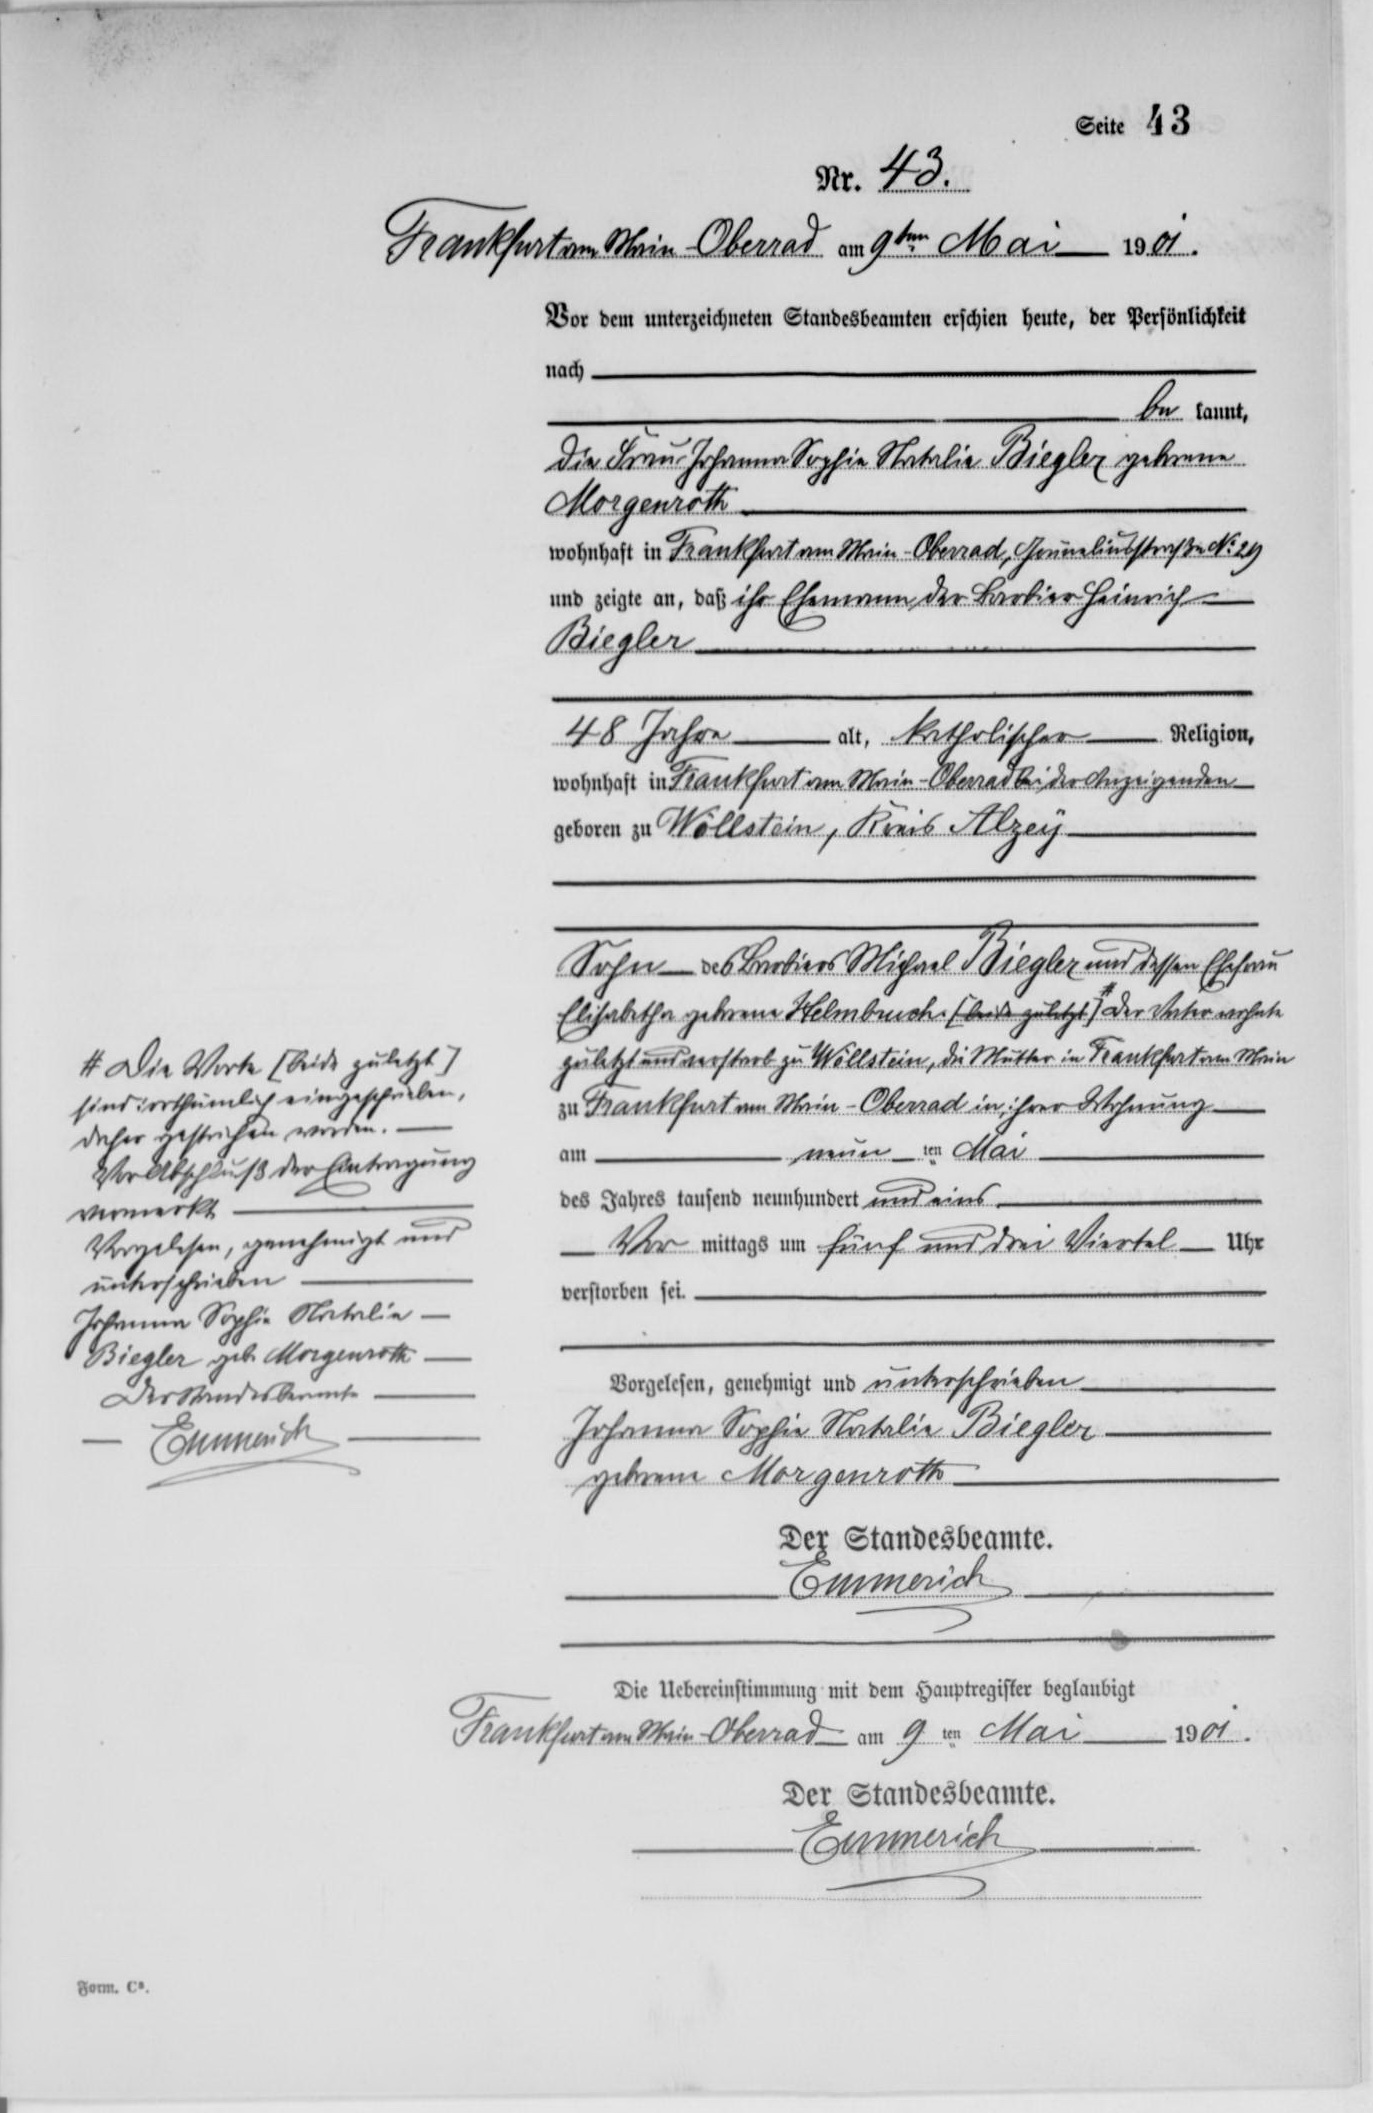 Seite 43
Nr. 43.
Frankfurt am Main-Oberrad am 9ten Mai 1901.
Vor dem unterzeichneten Standesbeamten erschien heute, der Persönlichkeit
nach
be kannt,
die Frau Johanna Sophie Natalie Biegler geborene
Morgenroth
wohnhaft in Frankfurt am Main-Oberrad, No. 29
und zeigte an, daß ihr Ehemann der Barbier Heinrich
Biegler
48 Jahre alt, katholischer Religion,
wohnhaft in Frankfurt am Main-Oberrad bei der Anzeigenden
geboren zu Wöllstein, Kreis Alzey
Sohn des Barbiers Michael Biegler und dessen Ehefrau
Elisabetha geborene Helmbruch. [beide zuletzt] # der Vater wohnte
zuletzt und verstarb zu Wöllstein, die Mutter in Frankfurt am Main
zu Frankfurt am Main-Oberrad in ihrer Wohnung
am neun ten Mai
des Jahres tausend neunhundert und eins
Vor mittags um fünf und drei Viertel Uhr
verstorben sei.
Vorgelesen, genehmigt und unterschrieben
Johanna Sophie Natalie Biegler
geborene Morgenroth
Der Standesbeamte.
Emmerich
# Die Worte [beide zuletzt]
sind irrthümlich eingeschrieben,
daher gestrichen worden.
Vor Abschluß der Eintragung
vermerkt
Vorgelesen, genehmigt und
unterschrieben
Johanna Sophie Natalie
Biegler geb. Morgenroth
Der Standesbeamte
Emmerich
Die Uebereinstimmung mit dem Hauptregister beglaubigt
Frankfurt am Main-Oberrad am 9 ten Mai 1901.
Der Standesbeamte.
Emmerich
Form. C<sup>a</sup>.